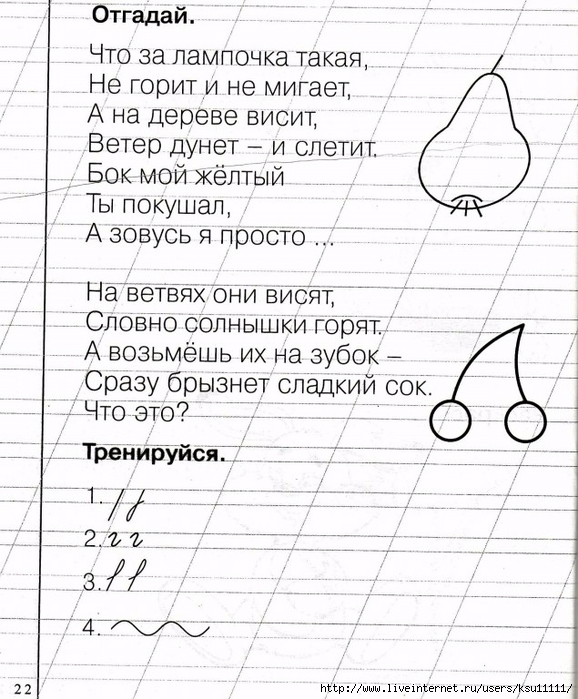 Отгадай.
Что за лампочка такая,
Не горит и не мигает,
А на дереве висит,
Ветер дунет – и слетит.
Бок мой жёлтый
Ты покушал,
А зовусь я просто ...
На ветвях они висят,
Словно солнышки горят.
А возьмёшь их на зубок –
Сразу брызнет сладкий сок.
Что это?
Тренируйся.
1.
2. г г
3.
4.
22
http://www.liveinternet.ru/users/ksu11111/